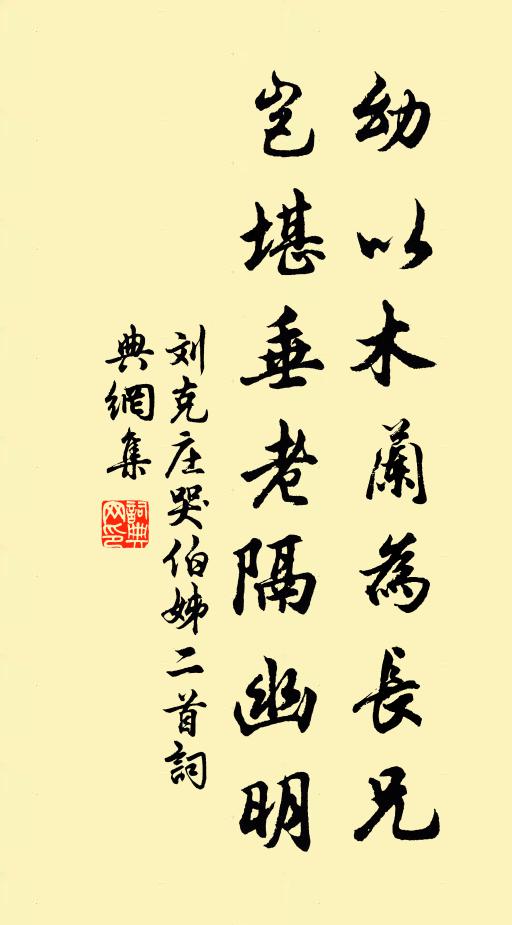 幼以木蘭為長兄
豈堪垂老隔幽明
刘克庄哭伯姊二首詞
典網集
詞典
网印